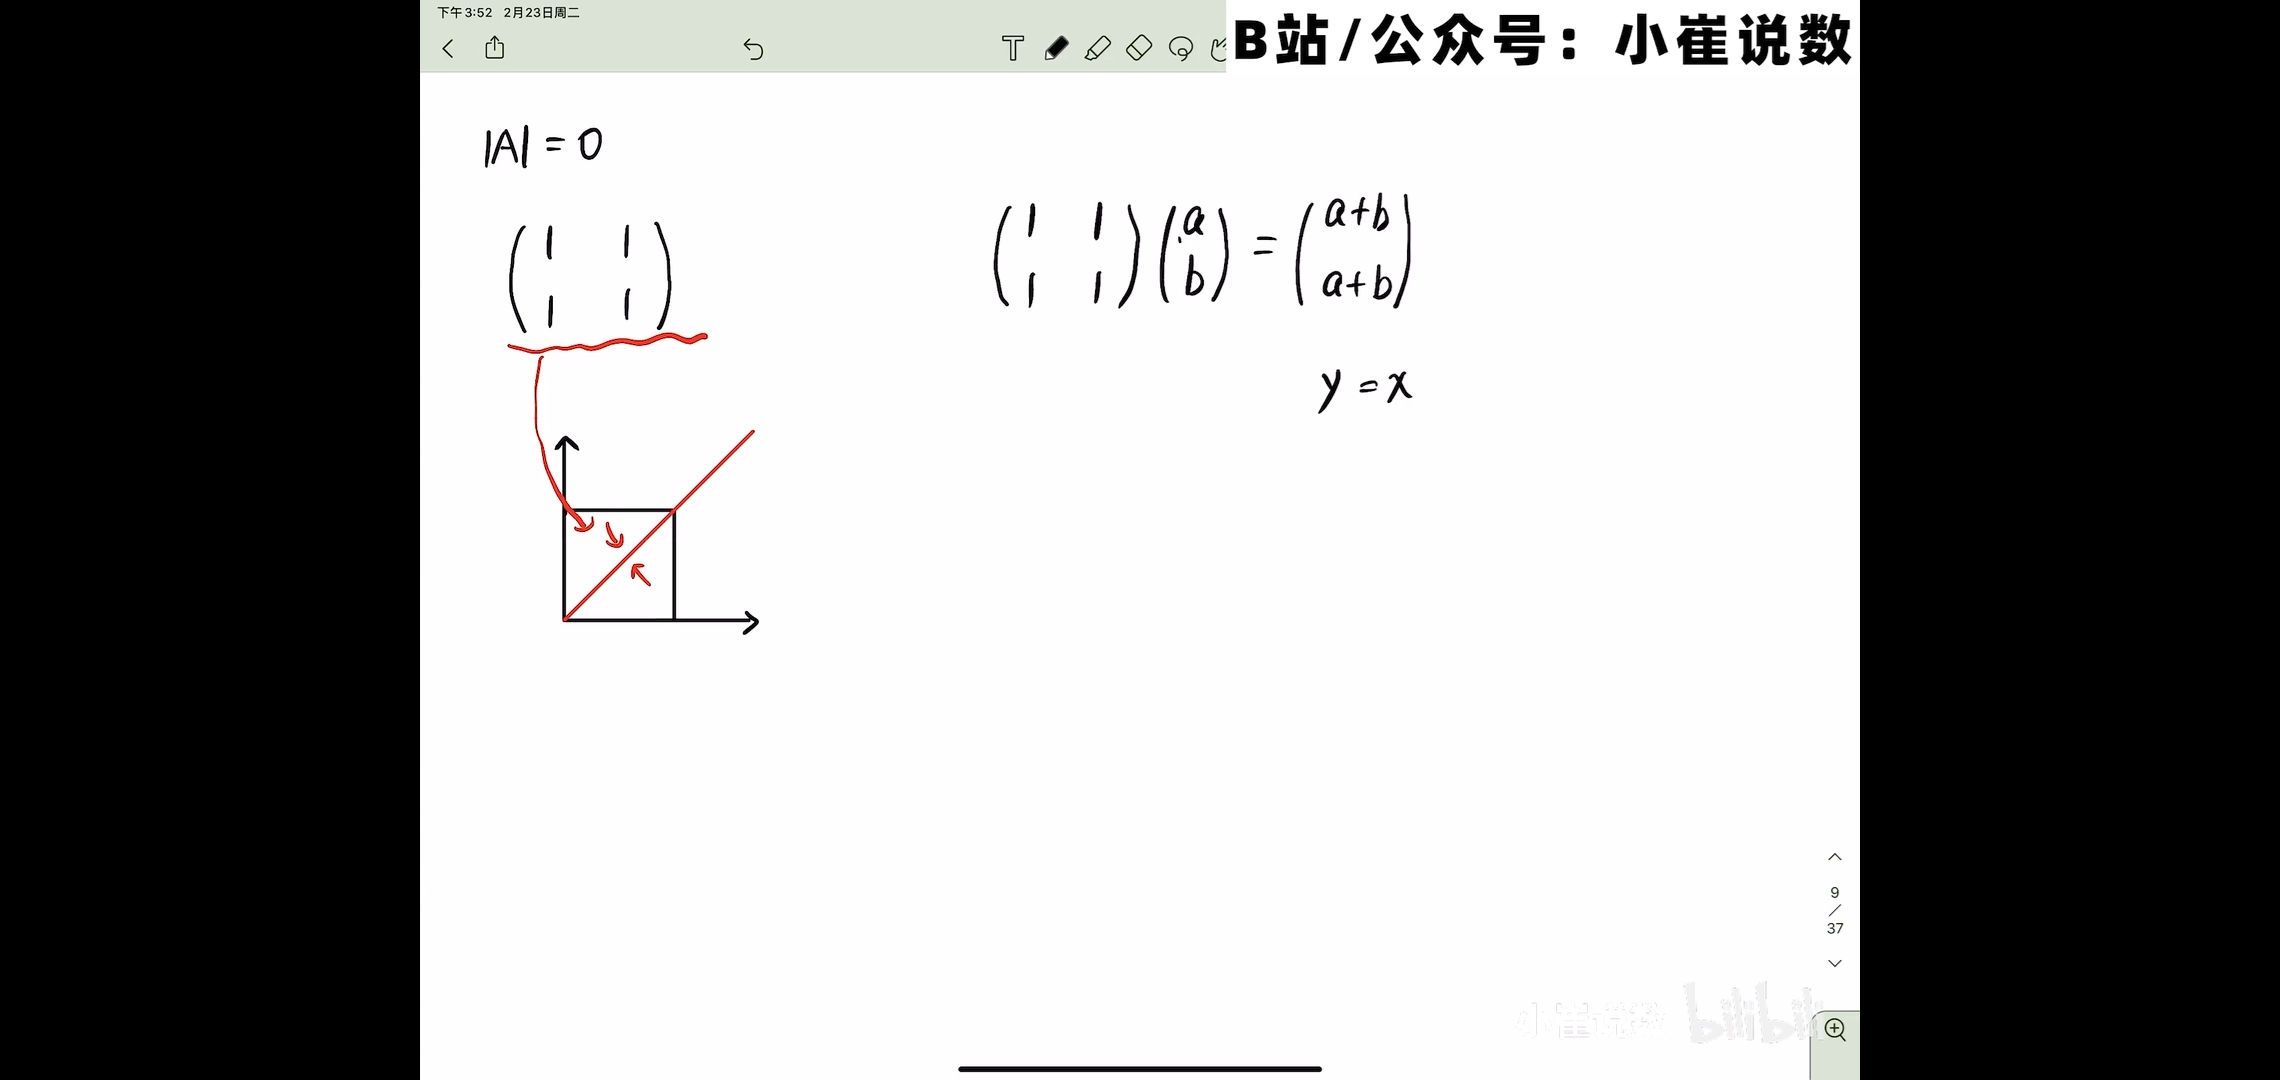 下午3:52 2月23日周二
B站/公众号：小崔说数
|A| = 0
( 1 1
1 1 )
( 1 1
1 1 ) ( a
b ) = ( a+b
a+b )
y = x
9
/
37
小崔说数 bilibili